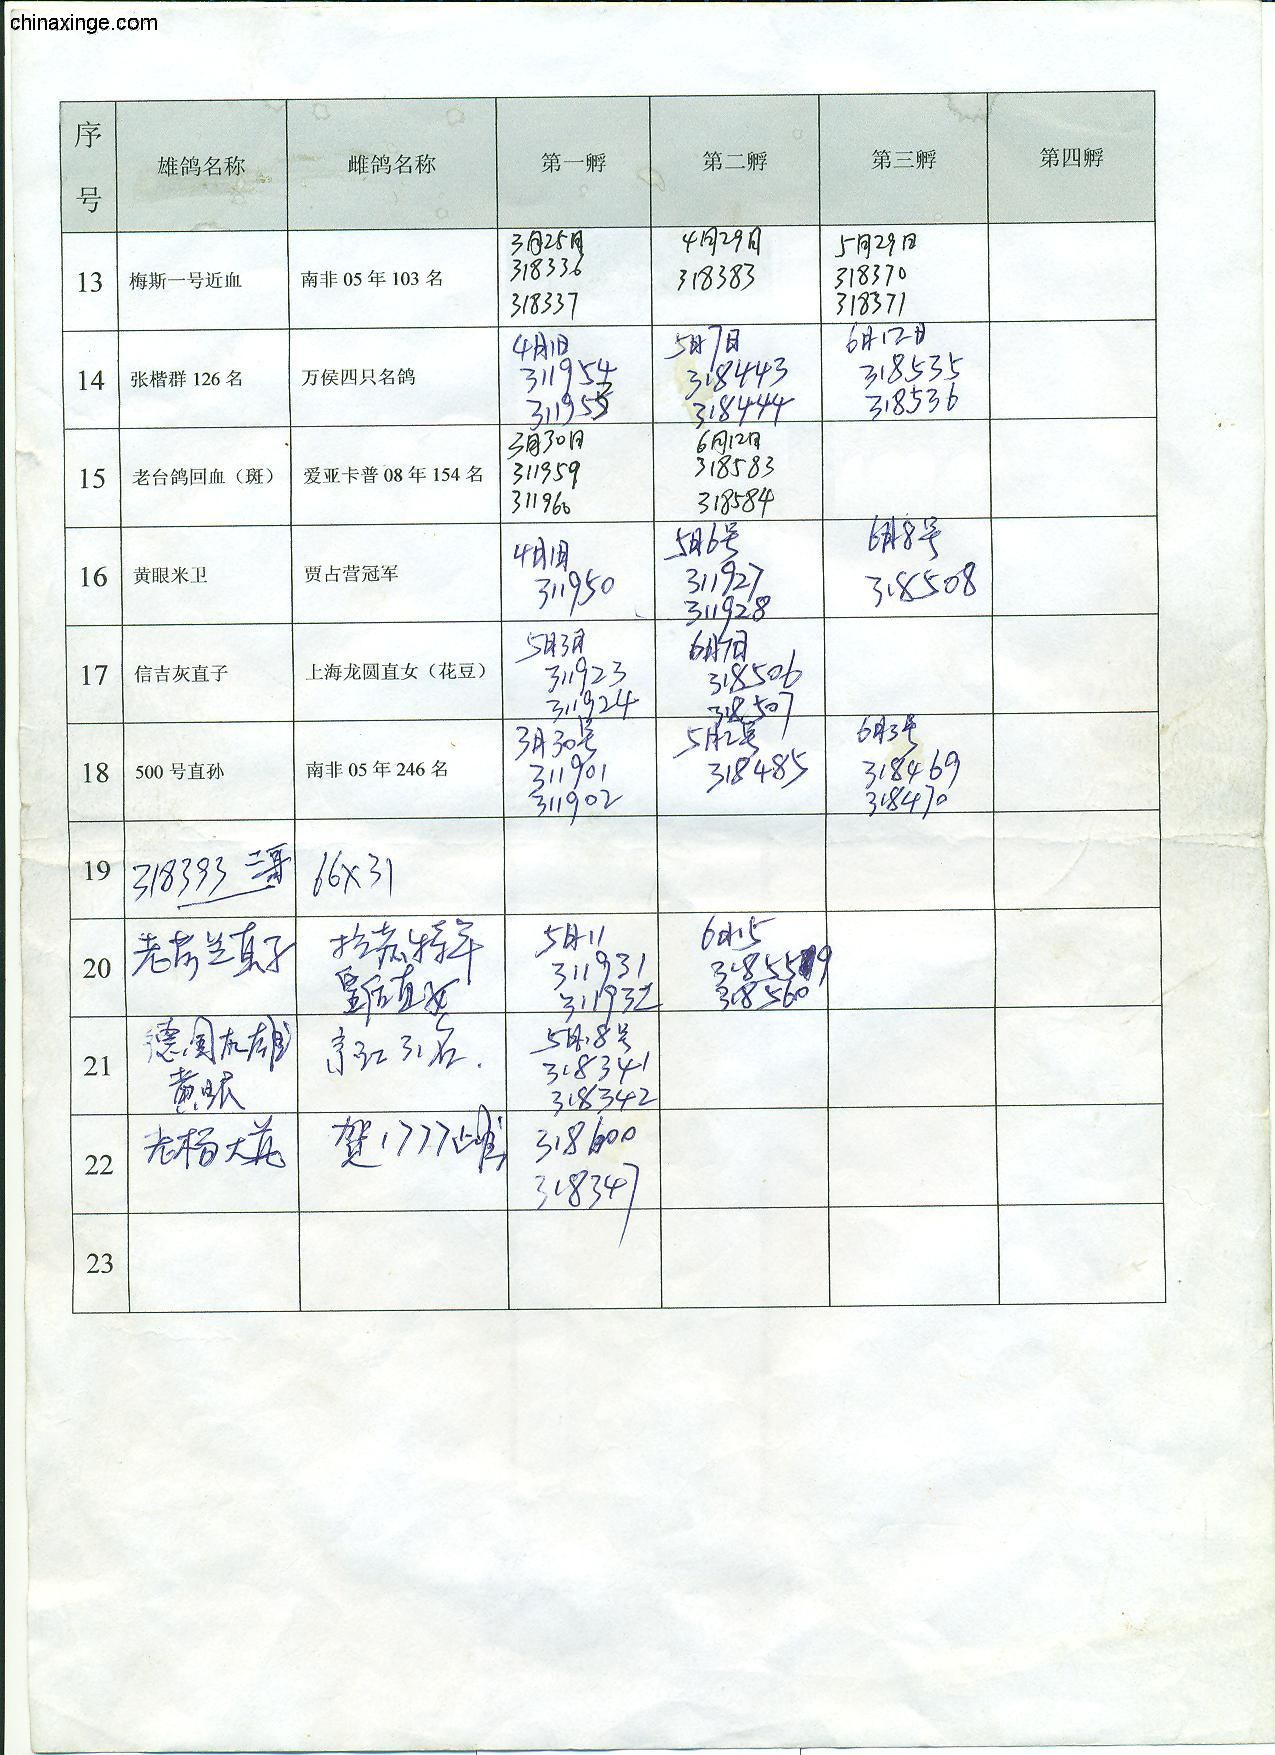 chinaxinge.com
序号 雄鸽名称 雌鸽名称 第一孵 第二孵 第三孵 第四孵
13 梅斯一号近血 南非 05 年 103 名
3月25日 4月29日 5月29日
318336 318383 318370
318337 318371
14 张楷群 126 名 万侯四只名鸽
4月1日 5月7日 6月12日
311954 318443 318535
311955 318444 318536
15 老台鸽回血（斑） 爱亚卡普 08 年 154 名
3月30日 6月12日
311959 318583
311960 318584
16 黄眼米卫 贾占营冠军
4月1日 5月6号 6月8号
311950 311927 318508
311928
17 信吉灰直子 上海龙圆直女（花豆）
5月3日 6月7日
311923 318506
311924 318507
18 500 号直孙 南非 05 年 246 名
3月30号 5月2号 6月3号
311901 318485 318469
311902 318470
19 318393 三哥 66X31
20 直子
皇后直女
5月11 6月15
311931 318559
311932 318560
21 德国灰雄 31名.
黄眼
5月18号
318341
318342
22 老杨大花 贺1777雌 318600
318347
23